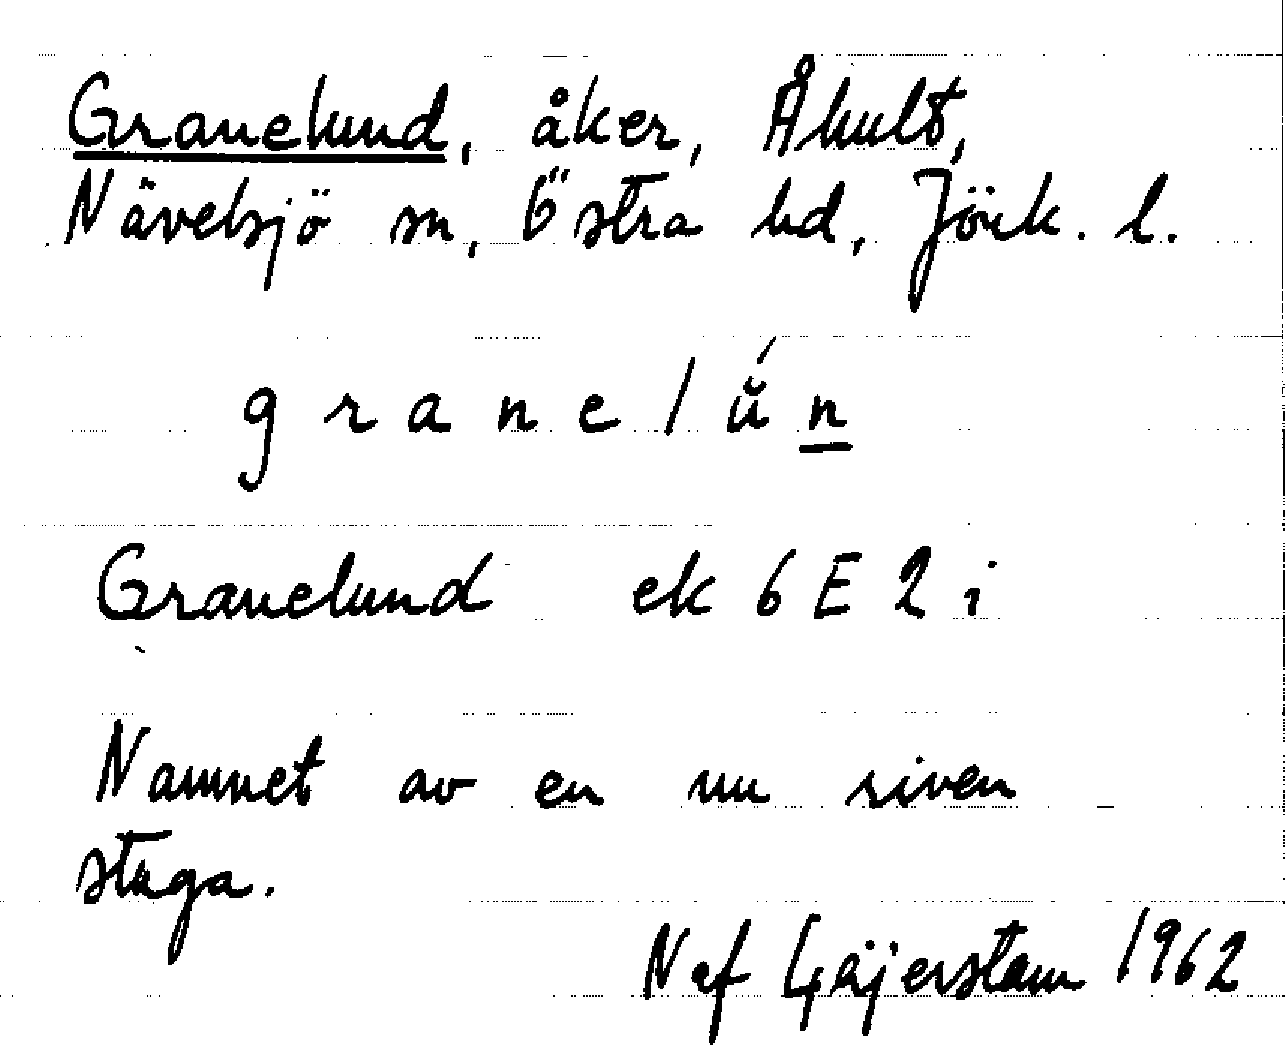 Granelund, åker, Åhult,
Nävelsjö sn, Östra hd, Jönk. l.
g r a n e l ŭ́ n
Granelund ek 6 E 2 i
Namnet av en nu riven
stuga.
Nef Gäjerstam 1962